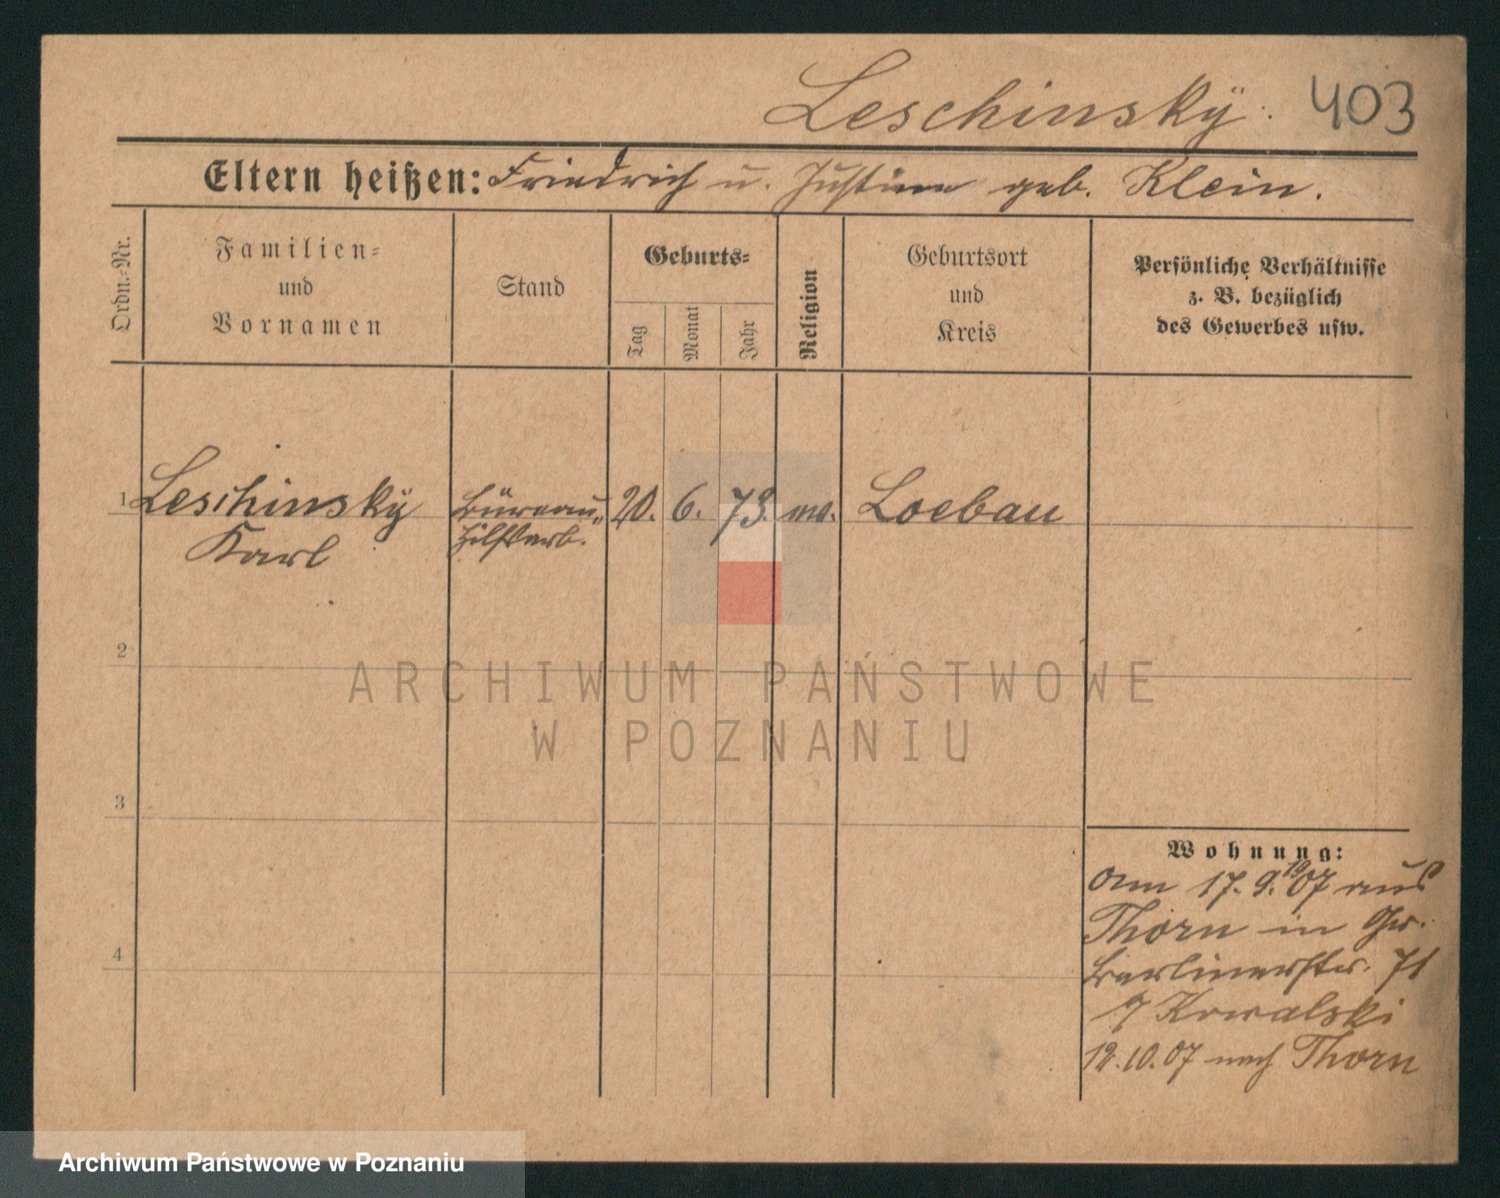 Leschinsky. 403
Eltern heißen: Friedrich u. Justine geb. Klein.
Ordn.-Nr.
Familien-
und
Vornamen
Stand
Geburts-
Tag
Monat
Jahr
Religion
Geburtsort
und
Kreis
Persönliche Verhältnisse
z. B. bezüglich
des Gewerbes usw.
1 Leschinsky Büreau- 20. 6. 73. Loebau
Karl Hilfsarb.
2
3
4
Wohnung:
Am 17. 9. 1907 aus
Thorn in
Berlinerstr. 71
Kowalski
12.10.07 nach Thorn
ARCHIWUM PAŃSTWOWE
W POZNANIU
Archiwum Państwowe w Poznaniu